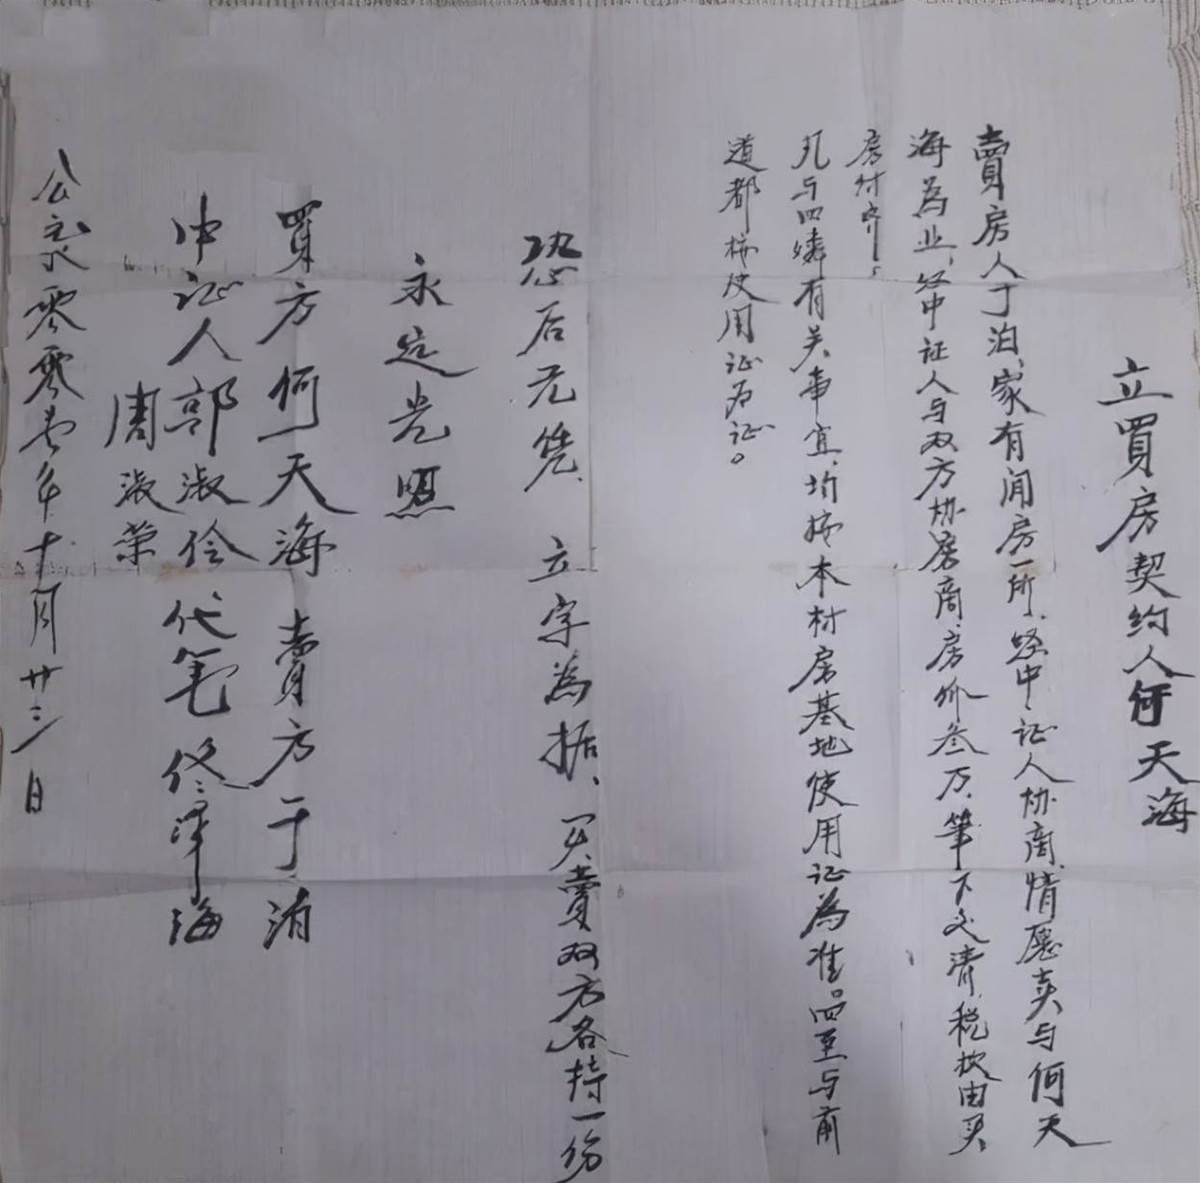 立買房契约人何天海
賣房人于泊、家有闲房一所、经中证人协商、情愿卖与何天
海為业、经中证人与双方协商、房价叁万、筆下交清、税款由买
房付齐。
凡与四隣有关事宜、均按本村房基地使用证為准。四至与前
道都按使用证为证。
恐后无凭、立字為据、买賣双方各持一份
永远光照
買方何天海 賣方于泊
中证人郭淑伶 代笔佟泽海
周淑荣
公元贰零零壹年十一月廿三日